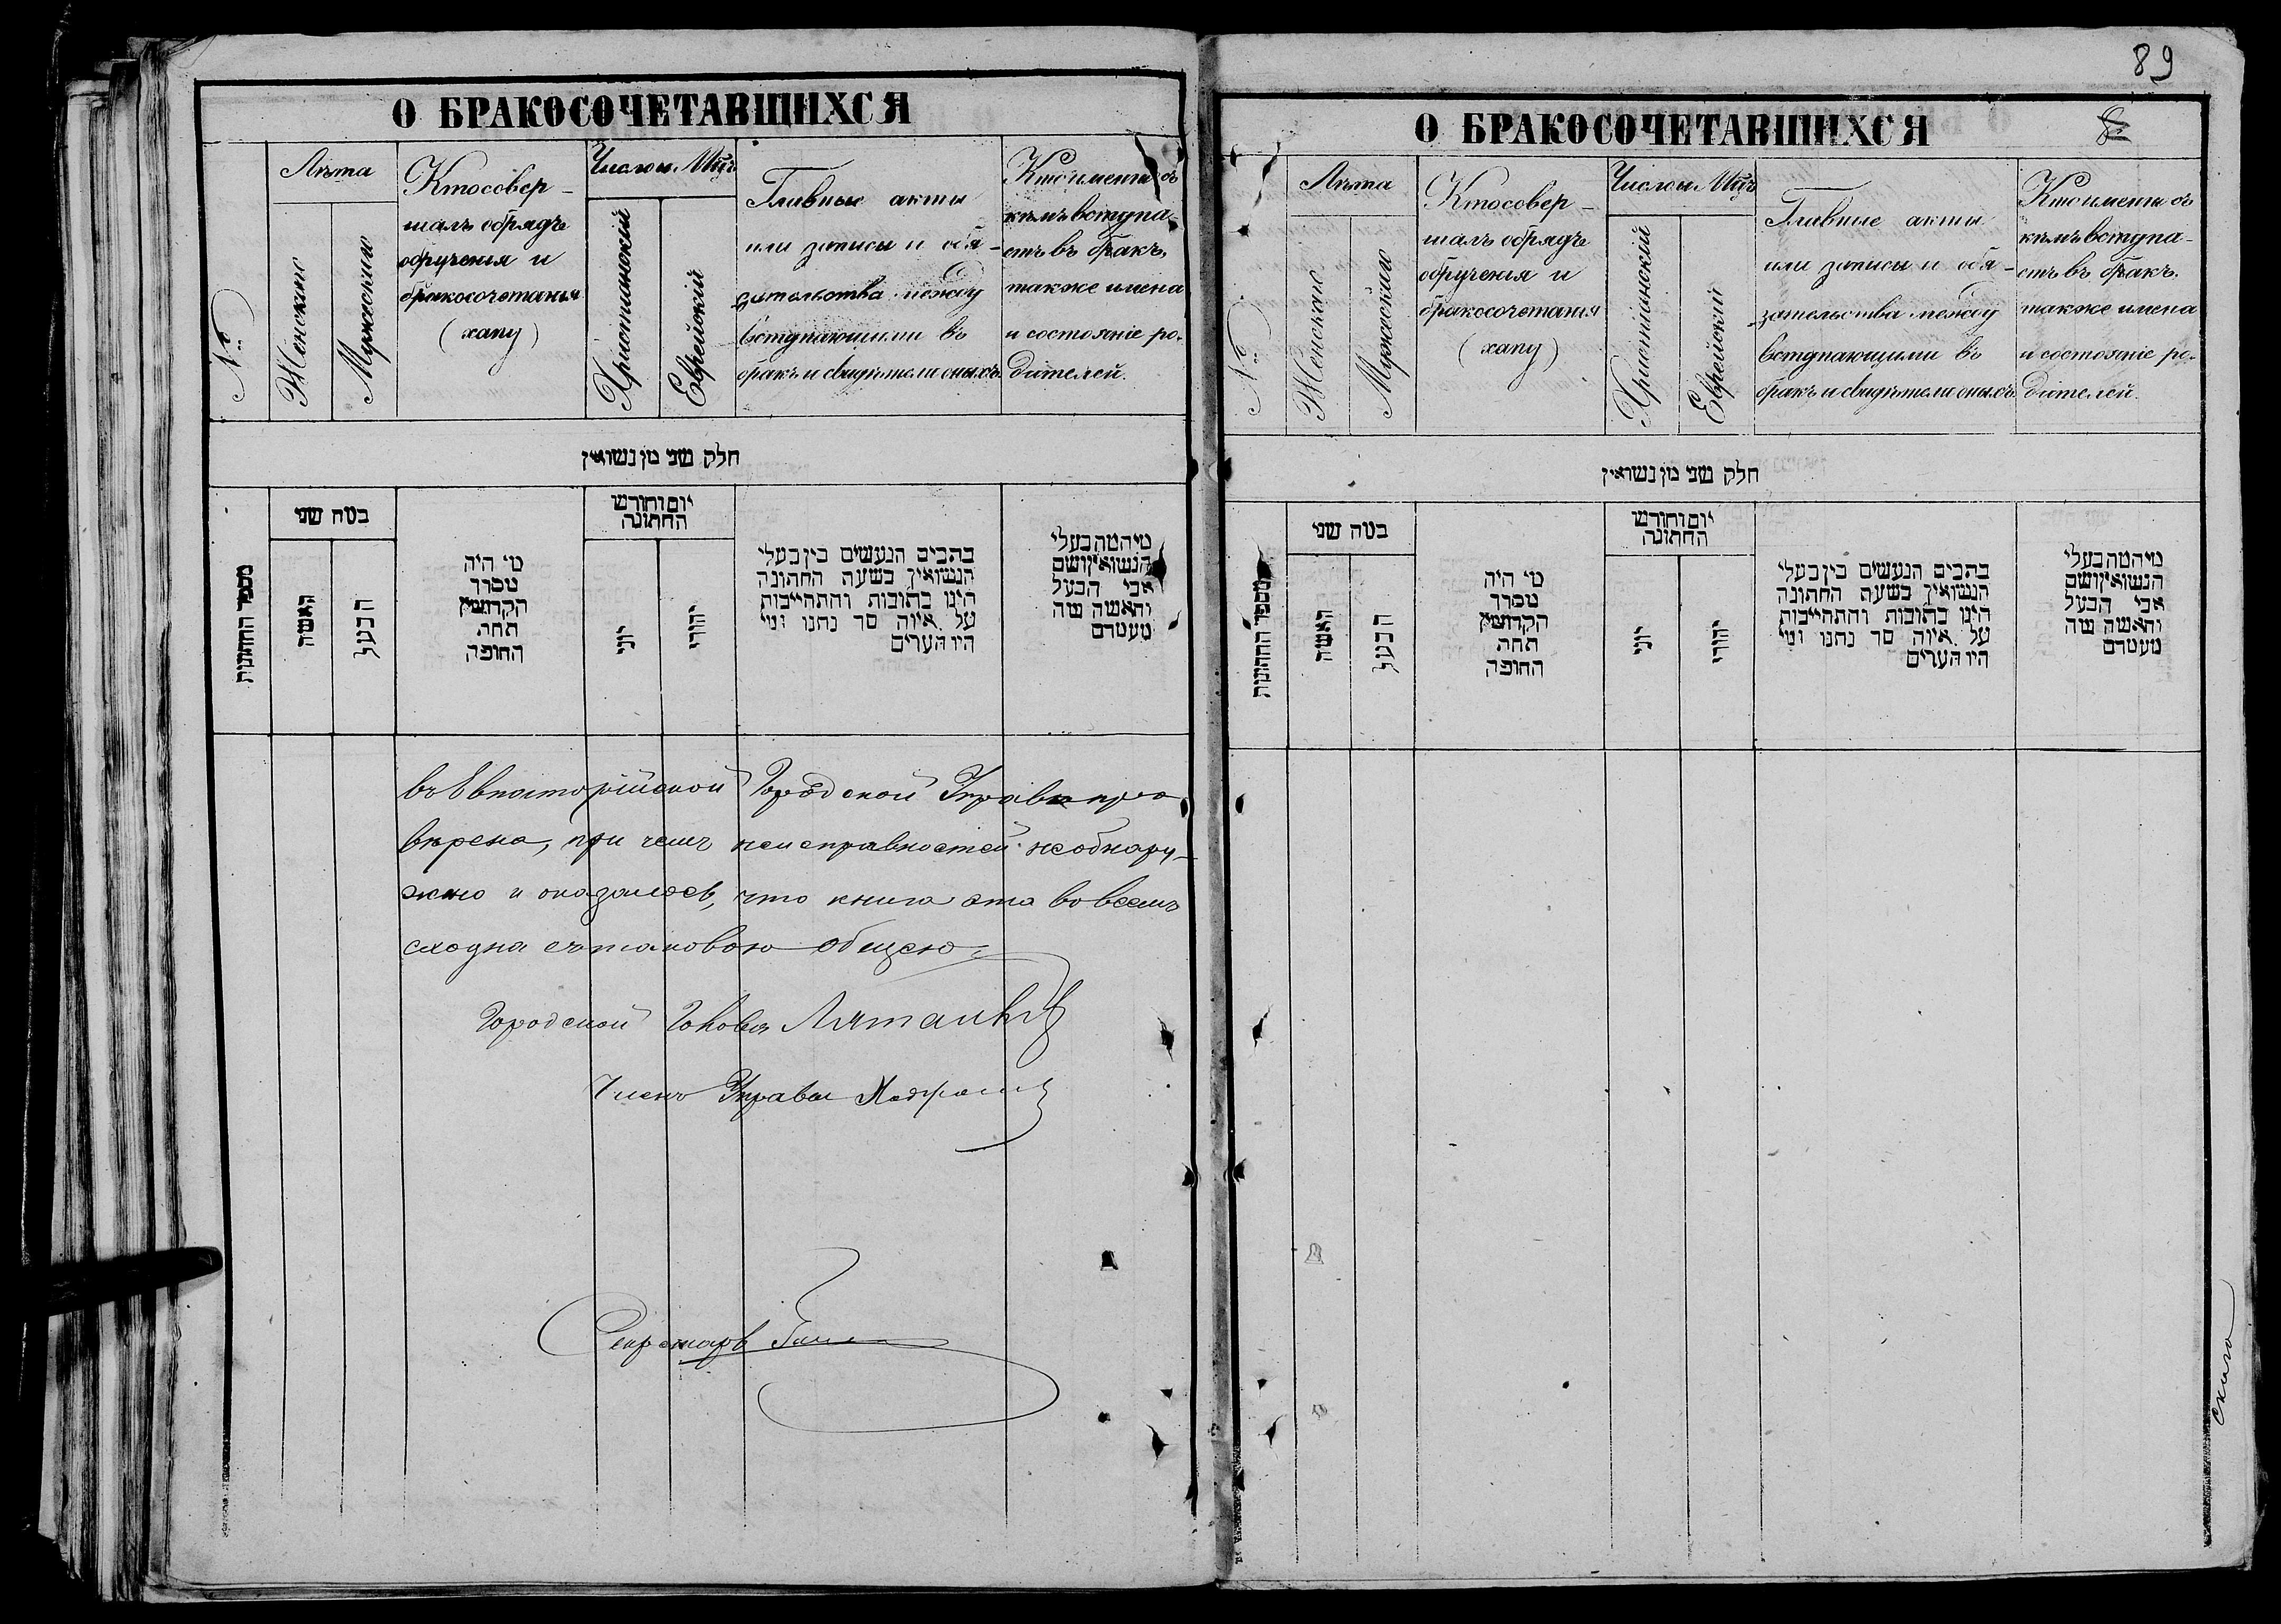 О БРАКОСОЧЕТАВШИХСЯ
№
Лѣта
Женскаго
Мужескаго
Кто совер-
шалъ обрядъ
обрученія и
бракосочетанія
(хапу)
Число и Мцъ
Христіанскій
Еврейскій
Главные акты
или записи и обя-
зательства между
вступающими въ
бракъ и свидѣтели оныхъ.
Кто именно съ
кѣмъ вступа-
етъ въ бракъ,
также имена
и состояніе ро-
дителей.
חלק שני מן נשואין
מספר החתונות
כמה שני
האשה
הבעל
מי היה
מסדר
הקדושין
תחת
החופה
יום וחודש
החתונה
יוני
יהודי
כתבים הנעשים בין בעלי
הנשואין בשעת החתונה
היינו כתובות והתחייבות
על איזה סך נתנו ומי
היו העדים
מי המה בעלי
הנשואין ושם
אבי הבעל
והאשה ומה
מעמדם
въ Евпаторійской Городской Управѣ про
вѣрена, при чемъ неисправностей не обнару-
жено и оказалось, что книга эта во всемъ
сходна съ таковою общею.
Городской Голова
Членъ Управы
Секретарь
89
О БРАКОСОЧЕТАВШИХСЯ
8
№
Лѣта
Женскаго
Мужескаго
Кто совер-
шалъ обрядъ
обрученія и
бракосочетанія
(хапу)
Число и Мцъ
Христіанскій
Еврейскій
Главные акты
или записи и обя-
зательства между
вступающими въ
бракъ и свидѣтели оныхъ.
Кто именно съ
кѣмъ вступа-
етъ въ бракъ,
также имена
и состояніе ро-
дителей.
חלק שני מן נשואין
מספר החתונות
כמה שני
האשה
הבעל
מי היה
מסדר
הקדושין
תחת
החופה
יום וחודש
החתונה
יוני
יהודי
כתבים הנעשים בין בעלי
הנשואין בשעת החתונה
היינו כתובות והתחייבות
על איזה סך נתנו ומי
היו העדים
מי המה בעלי
הנשואין ושם
אבי הבעל
והאשה ומה
מעמדם